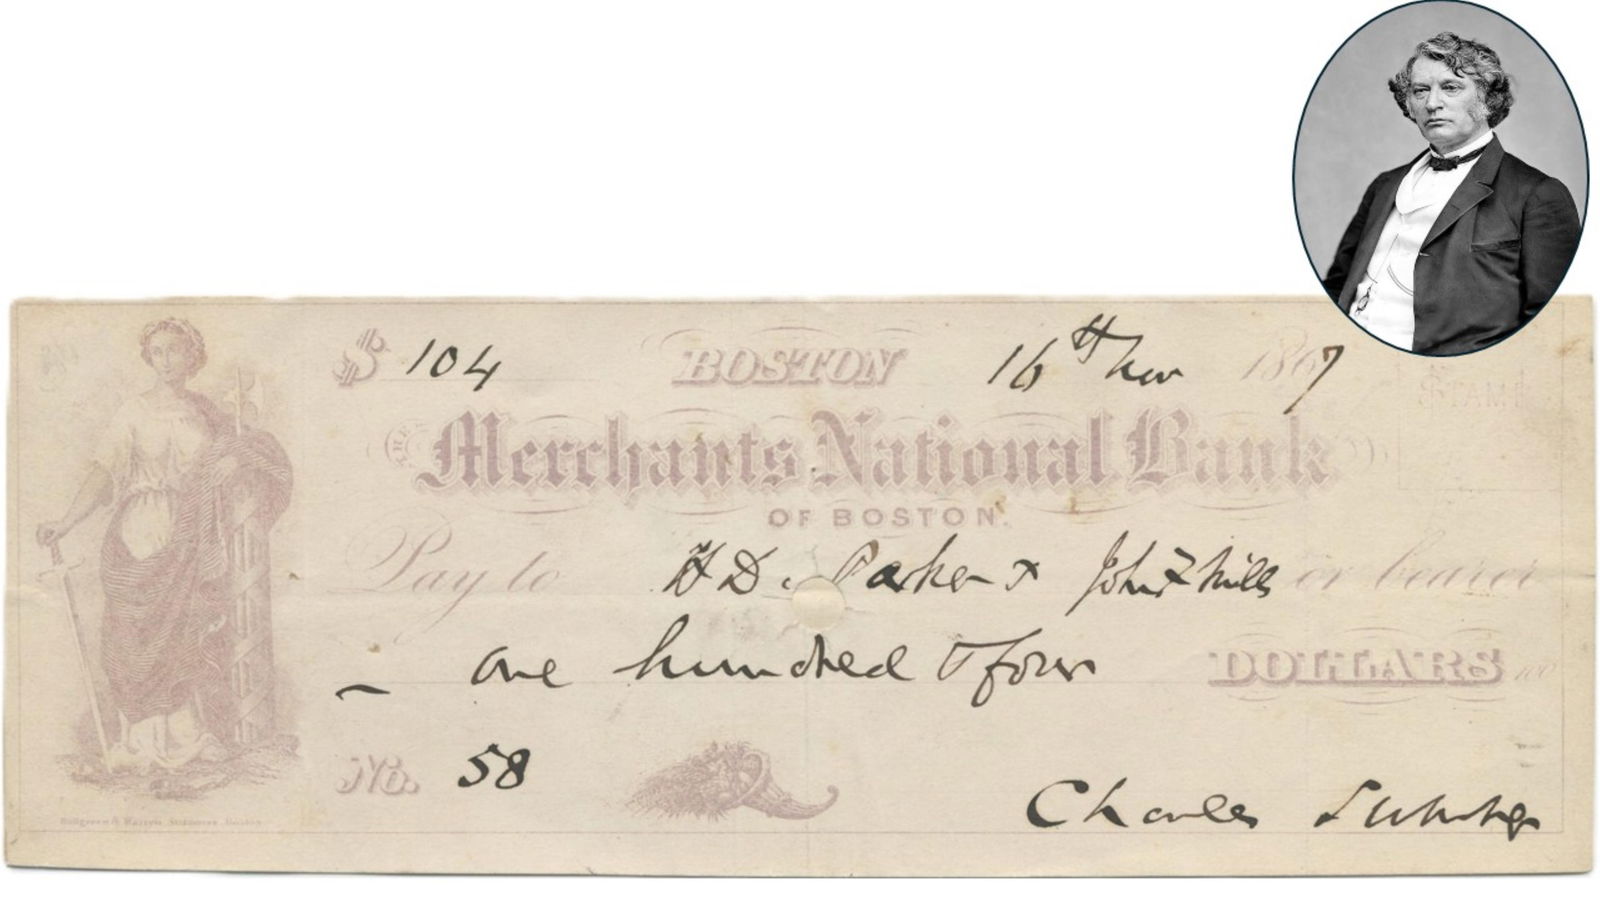 $ 104 BOSTON 16th Nov 1867
STAMP
THE Merchants National Bank
OF BOSTON.
Pay to H D. Parker & John F Mills or bearer
one hundred & four DOLLARS 100
No. 58
Charles Sumner
Stationers, Boston